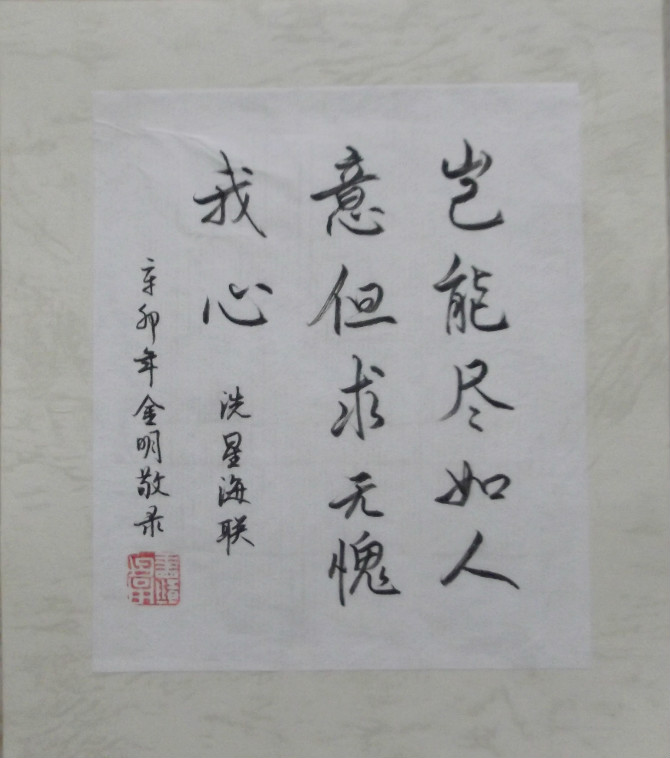 岂能尽如人
意但求无愧
我心
洗星海联
辛卯年金明敬录